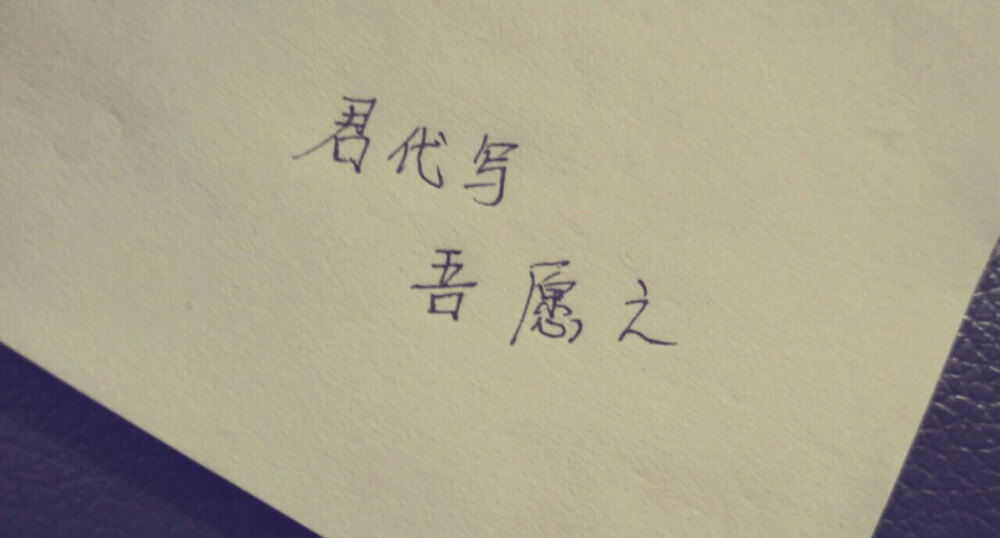 君代写
吾愿之